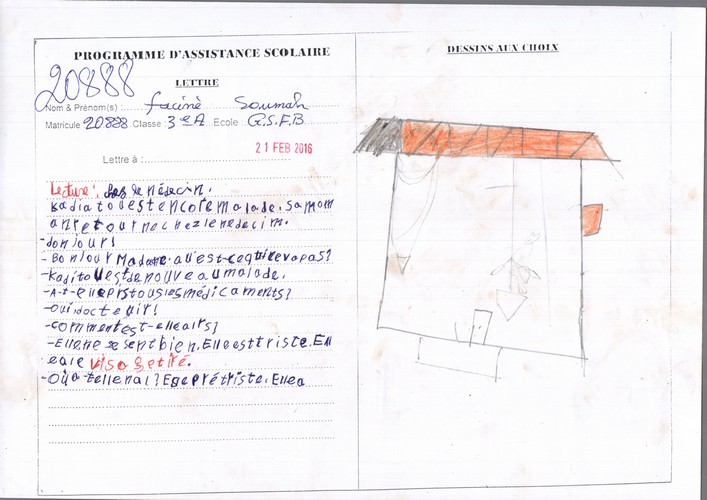 PROGRAMME D'ASSISTANCE SCOLAIRE
20888
LETTRE
Nom & Prénom(s) : faciné Soumah
Matricule 20888 Classe : 3e A Ecole G.S.F.B
21 FEB 2016
Lettre à :
Lecture: chez le médecin.
Kadiatouestencoremalade. Samam
anretournechezlemedecim.
-donjour!
-Bonjour Madame. qu'est-cequinevapas?
-Kaditouestdenouveaumalade.
-A-t-elleprstouslesmédicaments?
-oui docteur!
-commentest-elleairs?
-Ellene se sentbien. Elleesttriste. Ell
ealevisagetiré.
-Oùa-tellemal? Egeprétriste. Ellea
DESSINS AUX CHOIX